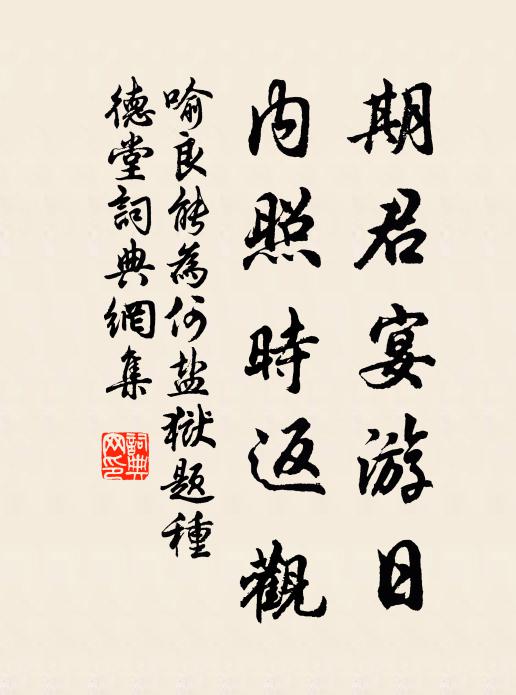 期君宴游日
内照時返觀
喻良能為何盐獄題種
德堂詞典網集
詞典
网印